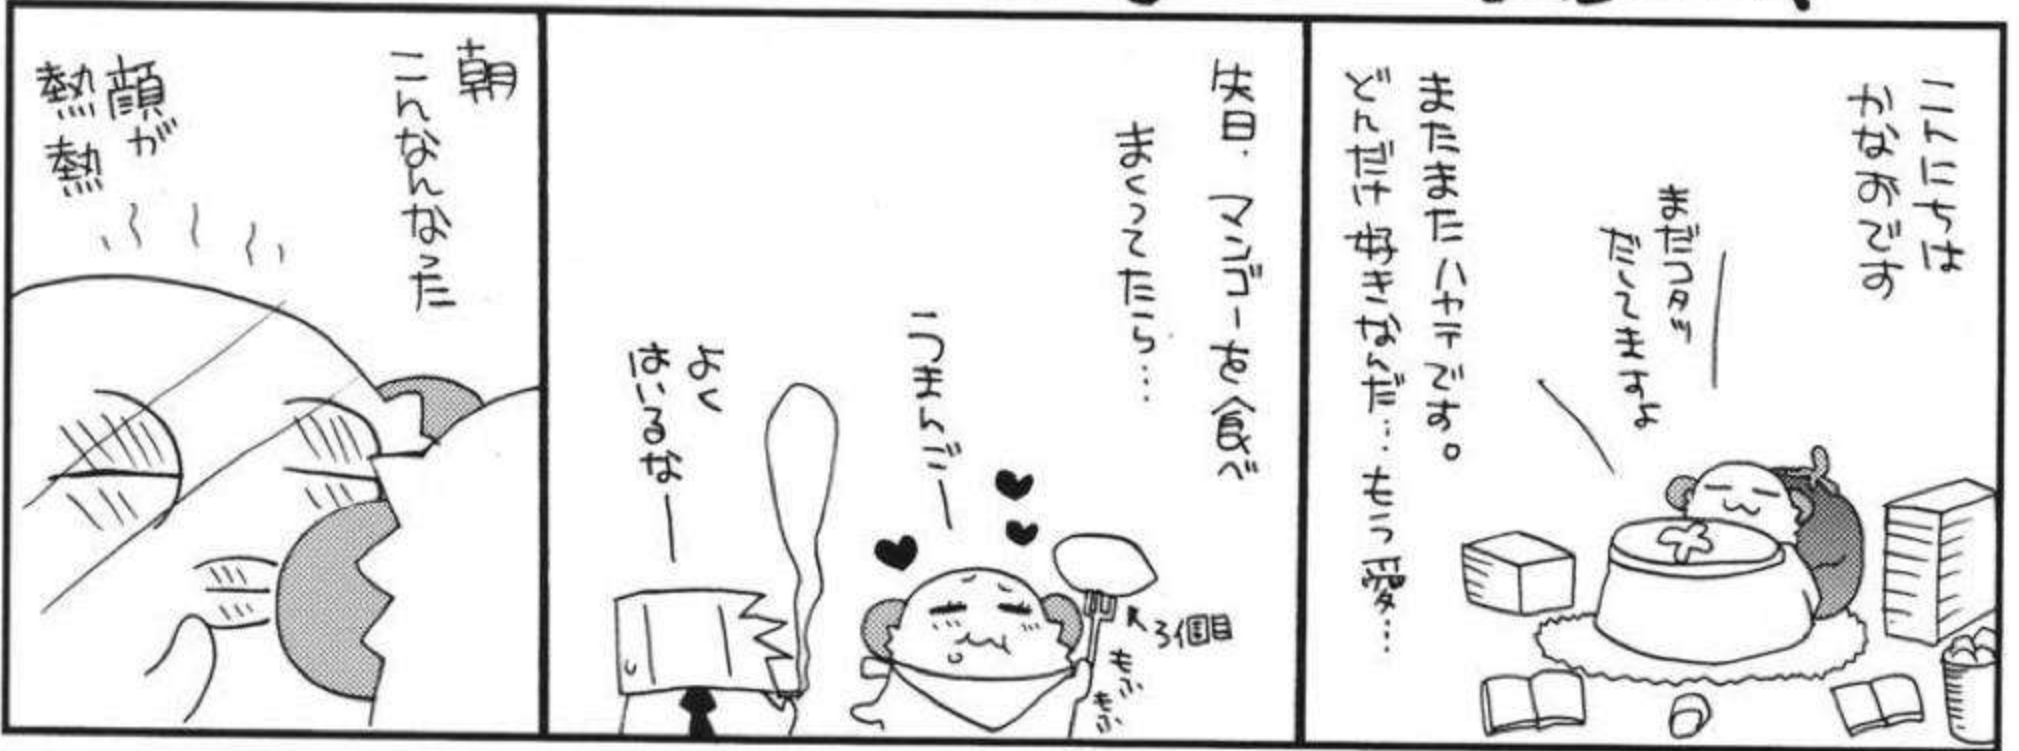 こんにちは
かなおです
まだコタツ
だしてますよ
またまたハヤテです。
どんだけ好きなんだ…もう愛…
先日、マンゴーを食べ
まくってたら…
うまんごー
3個目
もふ
もふ
よく
はいるなー
朝
こんなんなった
顔が
熱熱